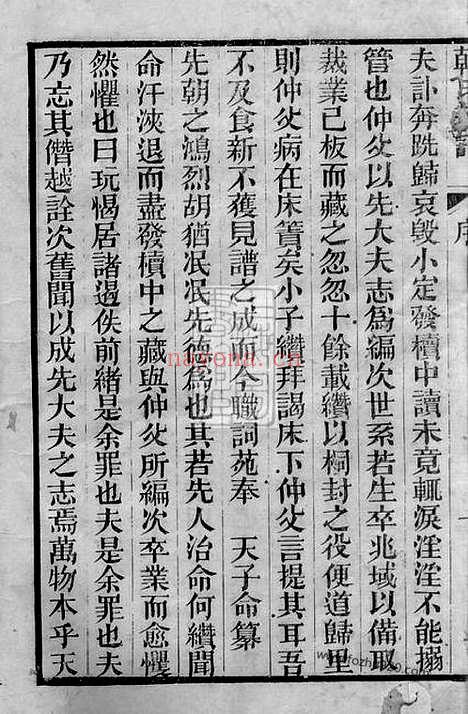 夫訃奔跣歸哀毀小定發櫝中讀未竟輒淚淫淫不能搦
管也仲父以先大夫志為編次世系若生卒兆域以備取
裁業已板而藏之忽忽十餘載纘以桐封之役便道歸里
則仲父病在床簀矣小子纘拜謁床下仲父言提其耳吾
不及食新不獲見譜之成而今職詞苑奉 天子命纂
先朝之鴻烈胡猶泯泯先德為也其若先人治命何纘聞
命汗浹退而盡發櫝中之藏與仲父所編次卒業而愈懼
然懼也曰玩愒居諸遏佚前緒是余罪也夫是余罪也夫
乃忘其僭越詮次舊聞以成先大夫之志焉萬物本乎天
序
nayona.cn